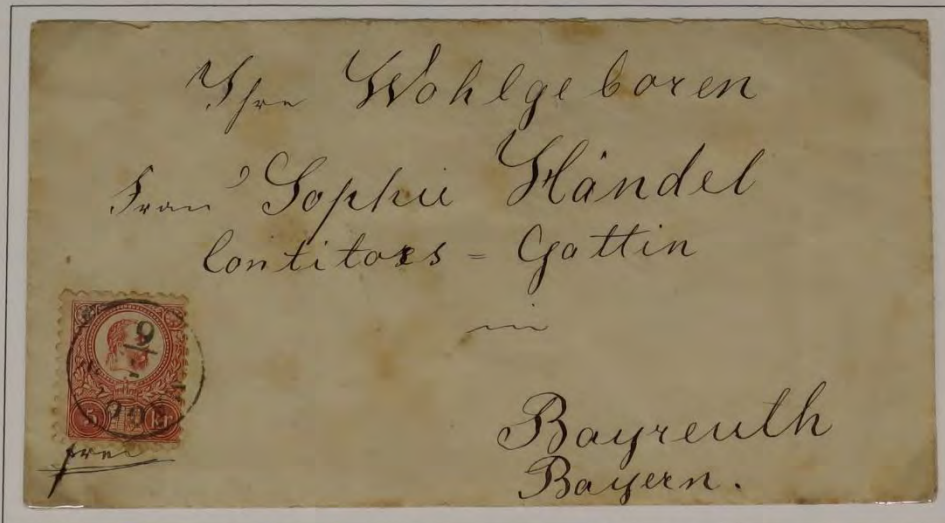 Ihre Wohlgeboren
Frau Sophie Händel
Contitors = Gattin
in
Bayreuth
Bayern.
5 Kr
9
frei